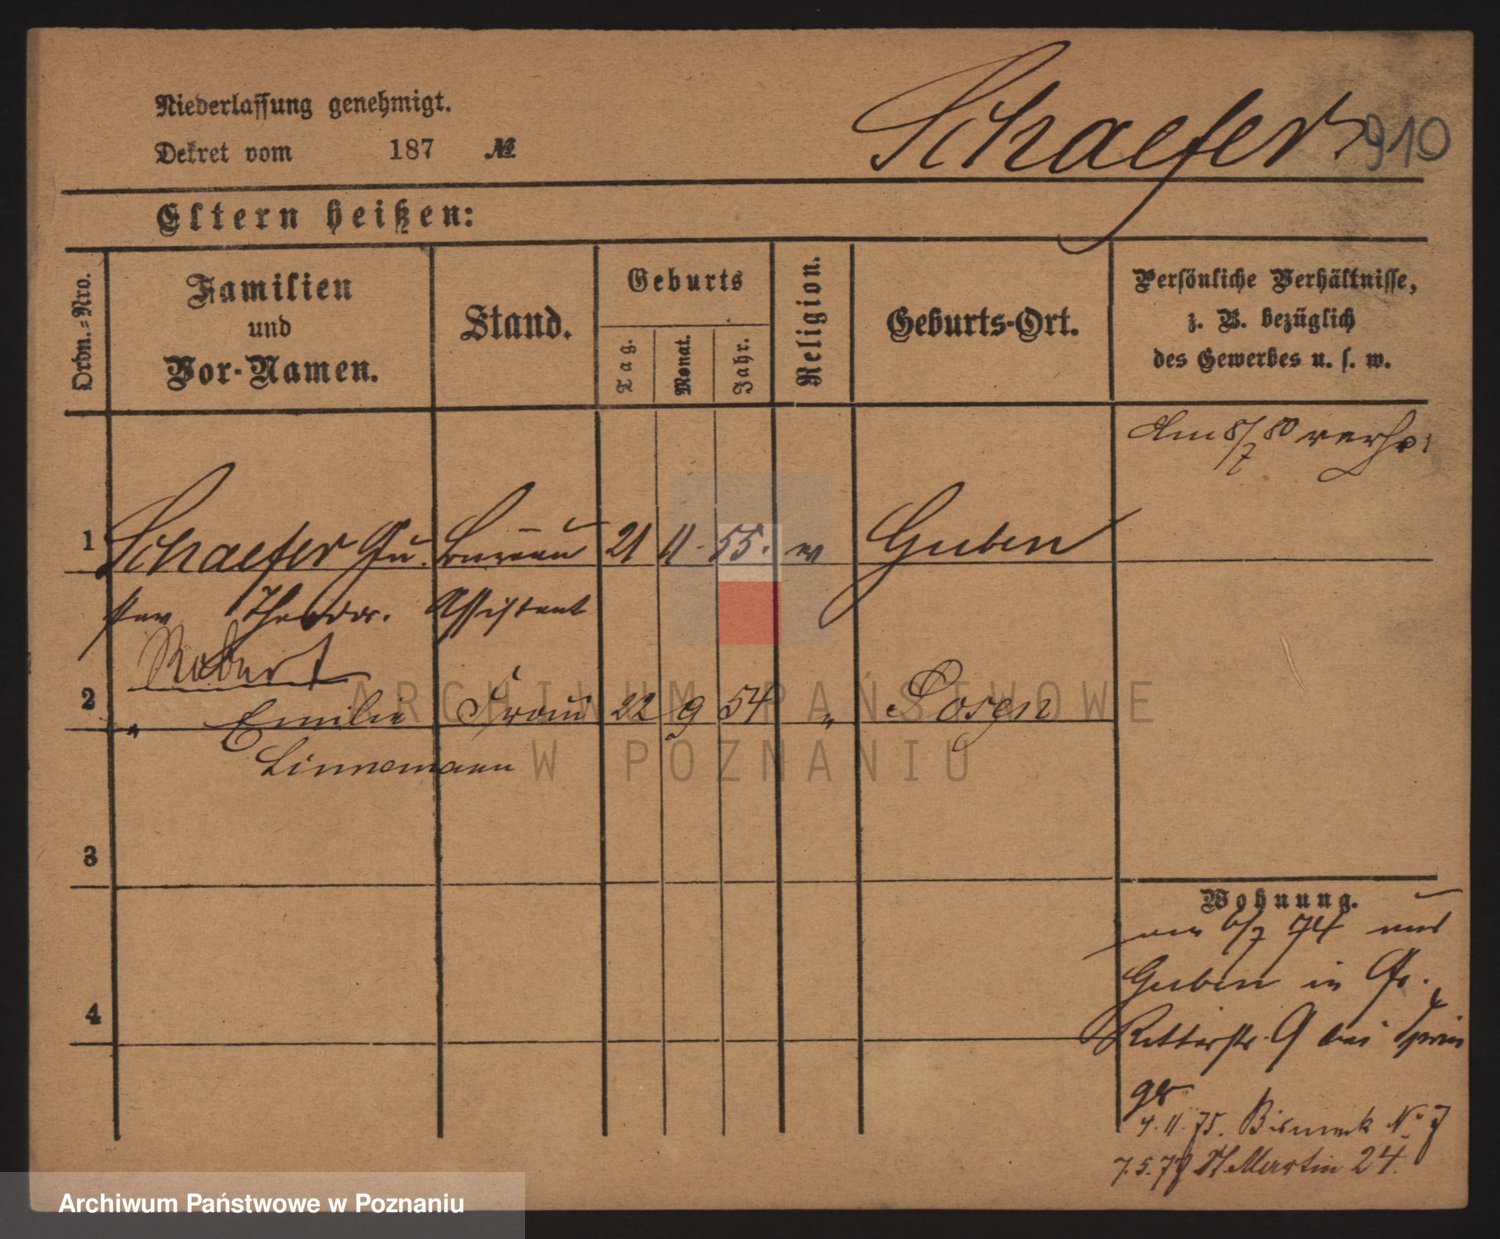 Niederlassung genehmigt.
Dekret vom 187 №
Schaefer 910
Eltern heißen:
Ordn.-Nro.
Familien
und
Vor-Namen.
Stand.
Geburts
Tag.
Monat.
Jahr.
Religion.
Geburts-Ort.
Persönliche Verhältnisse,
z. B. bezüglich
des Gewerbes u. s. w.
Am 8/7 80 verh.
1 Schaefer Gu- Bureau 21 11. 55. ev Guben
stav Theodor. Assistent
Robert
2 " Emilie Frau 22 9 54 " Posen
Linnemann
3
4
Wohnung.
am 6/7 74 aus
Guben in Gr.
Ritterstr. 9 bei Sprin
ger
4. 11. 75. Bismarck No 7
7. 5. 77 St Martin 24.
ARCHIWUM PAŃSTWOWE
W POZNANIU
Archiwum Państwowe w Poznaniu